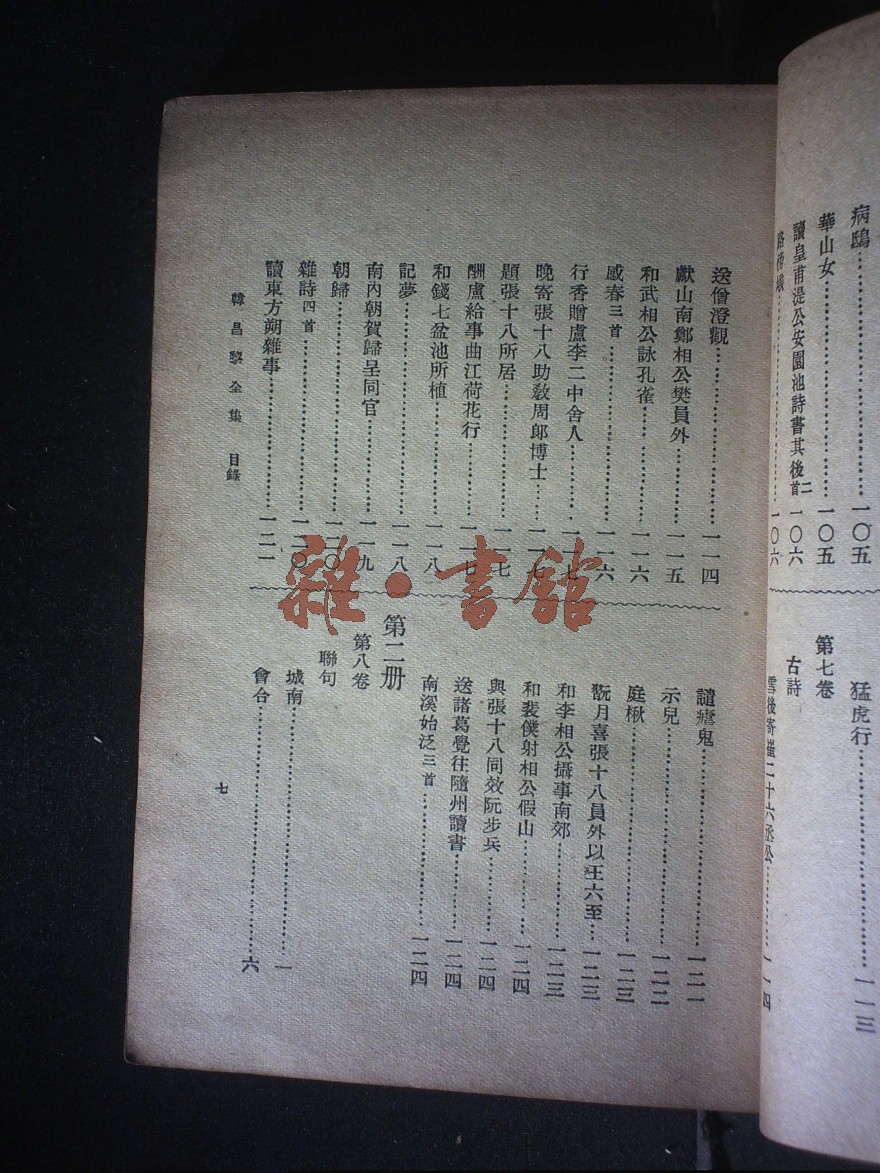 病鴟……一〇五
華山女……一〇五
讀皇甫湜公安園池詩書其後二首一〇六
一〇六
猛虎行……一一三
第七卷
古詩
雪後寄崔二十六丞公……一一四
送僧澄觀……一一四
獻山南鄭相公樊員外……一一五
和武相公詠孔雀……一一六
感春三首……一一六
行香贈盧李二中舍人……一一七
晚寄張十八助教周郎博士……一一七
題張十八所居……一一七
酬盧給事曲江荷花行……一一七
和錢七盆池所植……一一八
記夢……一一八
南內朝賀歸呈同官……一一九
朝歸……一二〇
雜詩四首……一二〇
讀東方朔雜事……一二一
譴瘧鬼……一二一
示兒……一二二
庭楸……一二三
翫月喜張十八員外以王六至……一二三
和李相公攝事南郊……一二三
和裴僕射相公假山……一二四
與張十八同效阮步兵……一二四
送諸葛覺往隨州讀書……一二四
南溪始泛三首……一二四
第二册
第八卷
聯句
城南……一
會合……六
韓昌黎全集 目錄
七
雜·書館